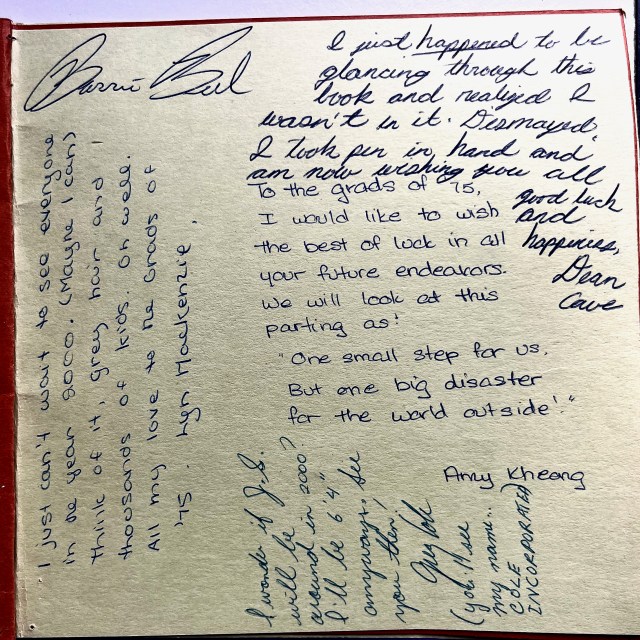 I just happened to be
glancing through this
book and realized I
wasn't in it. Dismayed
I took pen in hand and
am now wishing you all
good luck
and
happiness,
Dean
Cave
To the grads of '75,
I would like to wish
the best of luck in all
your future endeavors.
We will look at this
parting as:
"One small step for us,
But one big disaster
for the world outside!"
Amy Kheong
I just can't wait to see everyone
in the year 2000. (Maybe I can)
Think of it, grey hair and
thousands of kids. Oh well.
All my love to the Grads of
'75. Lyn Mackenzie.
I wonder if J.S.
will be
around in 2000?
I'll be 6'4"
anyways. See
you then!
(you'll see
my name...
COLE
INCORPORATED)